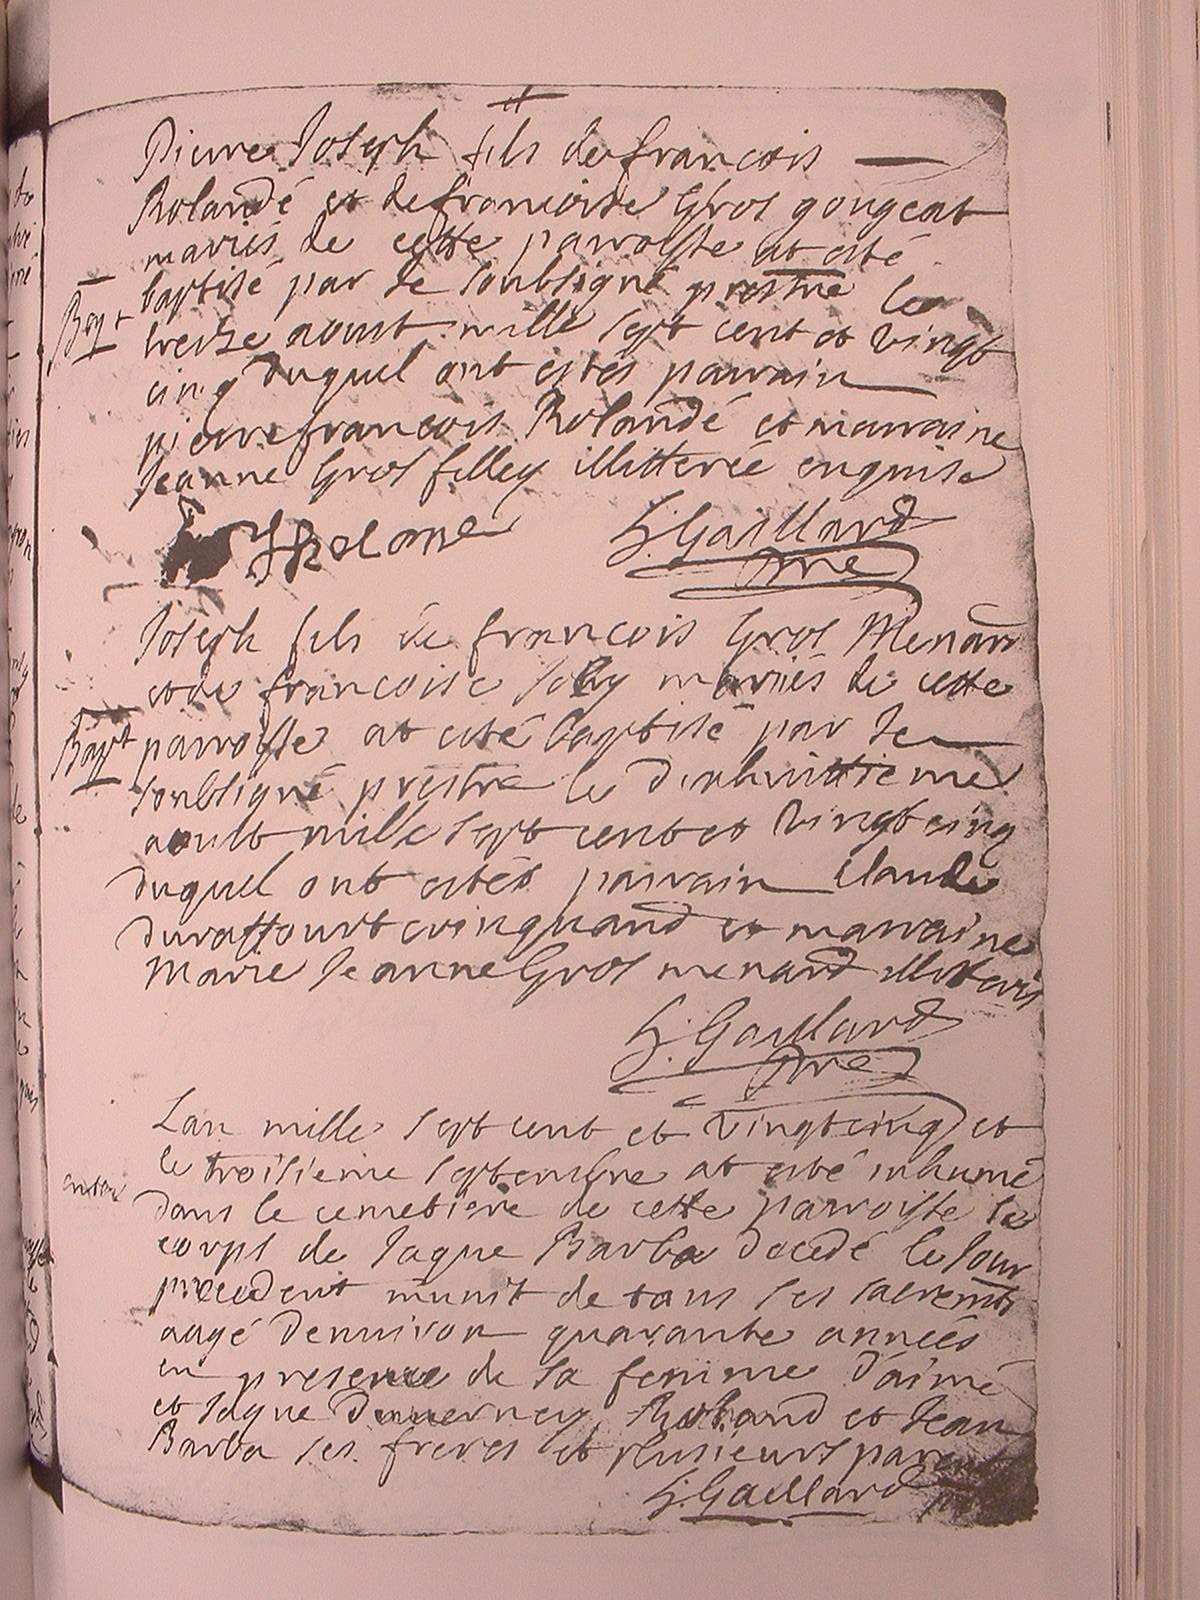 Pierre Joseph fils de francois
Rolandé et de francoise Gros gougeat
mariés de cette parroisse at esté
Bapt baptisé par le soubsigné prestre le
treize aoust mille sept cent et vingt
cinq duquel ont estés parrain
pierre francois Rolandé et marraine
Jeanne Gros filley illitterée enquise
G. Gaillard
pre
Joseph fils de francois Gros Menard
et de francoise mariés de cette
Bapt parroisse at esté baptisé par le
soubsigné prestre le dixhuittieme
aoust mille sept cent et vingt cinq
duquel ont estés parrain Claude
duraffourt coinquand et marraine
Marie Jeanne Gros menard
G. Gaillard
pre
Lan mille sept cent et vingt cinq et
le troisieme septembre at esté inhumé
dans le cemetiere de cette parroisse le
corps de Jaque Barba decedé le Jour
precedent munit de tous ses sacremts
aagé denuiron quarante années
en presence de sa femme d'aimé
et Jaque et Jean
Barba ses freres et plusieurs
G. Gaillard